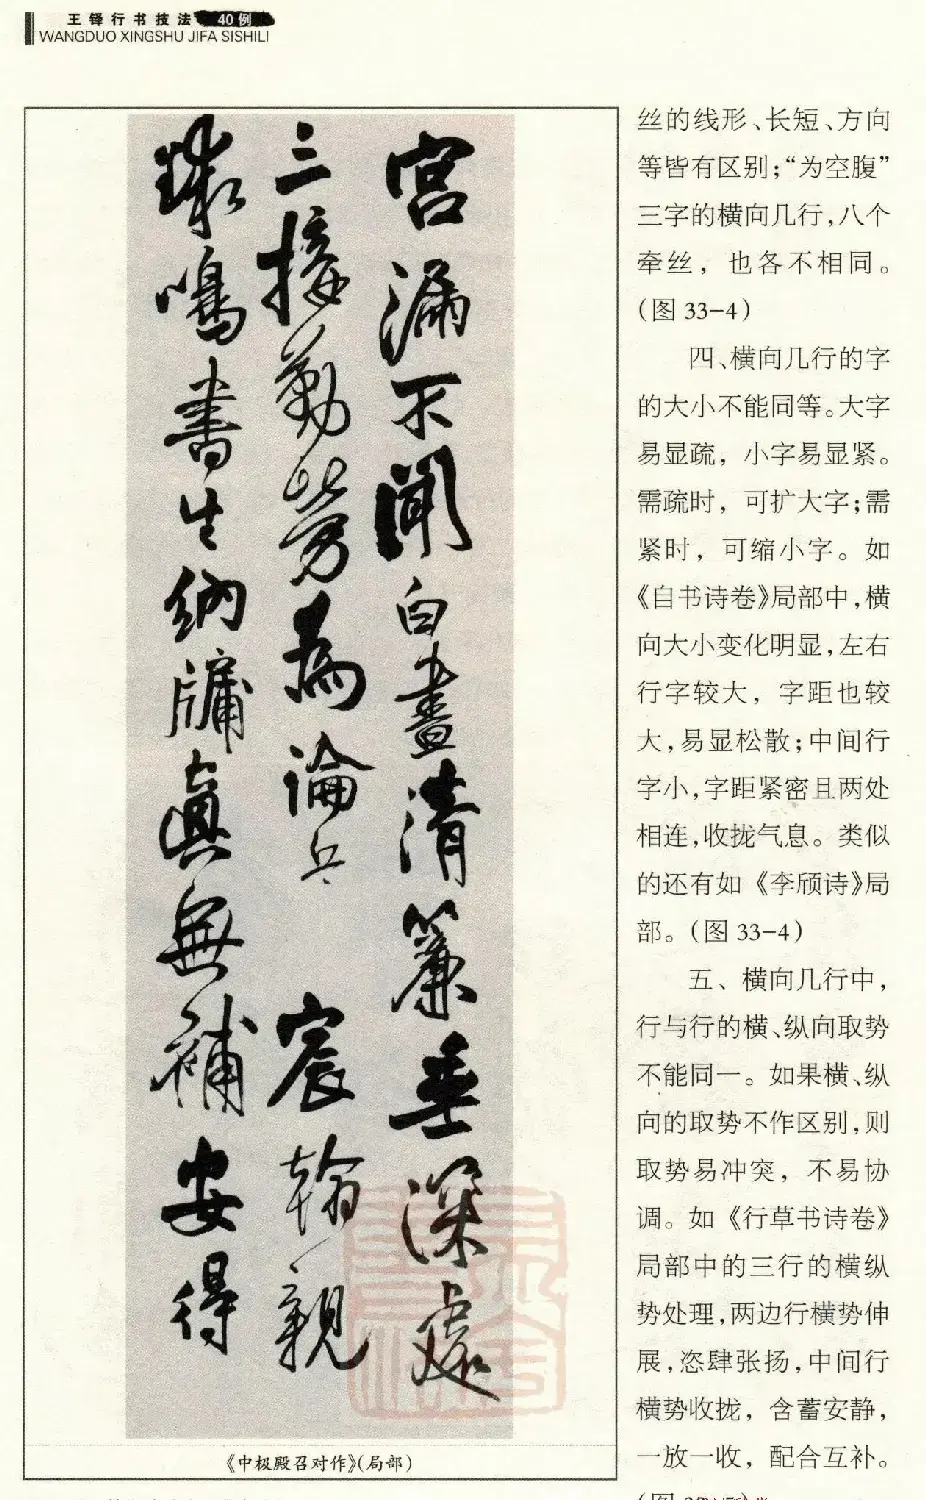 王铎行书技法 40例
WANGDUO XINGSHU JIFA SISHILI
宫漏不闻白晝清簾垂深處
三接勤勞為論兵 宸翰親
璆鳴書生納牖真無補安得
《中极殿召对作》(局部)
丝的线形、长短、方向
等皆有区别;“为空腹”
三字的横向几行,八个
牵丝,也各不相同。
(图 33-4)
四、横向几行的字
的大小不能同等。大字
易显疏,小字易显紧。
需疏时,可扩大字;需
紧时,可缩小字。如
《自书诗卷》局部中,横
向大小变化明显,左右
行字较大,字距也较
大,易显松散;中间行
字小,字距紧密且两处
相连,收拢气息。类似
的还有如《李颀诗》局
部。(图 33-4)
五、横向几行中,
行与行的横、纵向取势
不能同一。如果横、纵
向的取势不作区别,则
取势易冲突,不易协
调。如《行草书诗卷》
局部中的三行的横纵
势处理,两边行横势伸
展,恣肆张扬,中间行
横势收拢,含蓄安静,
一放一收,配合互补。